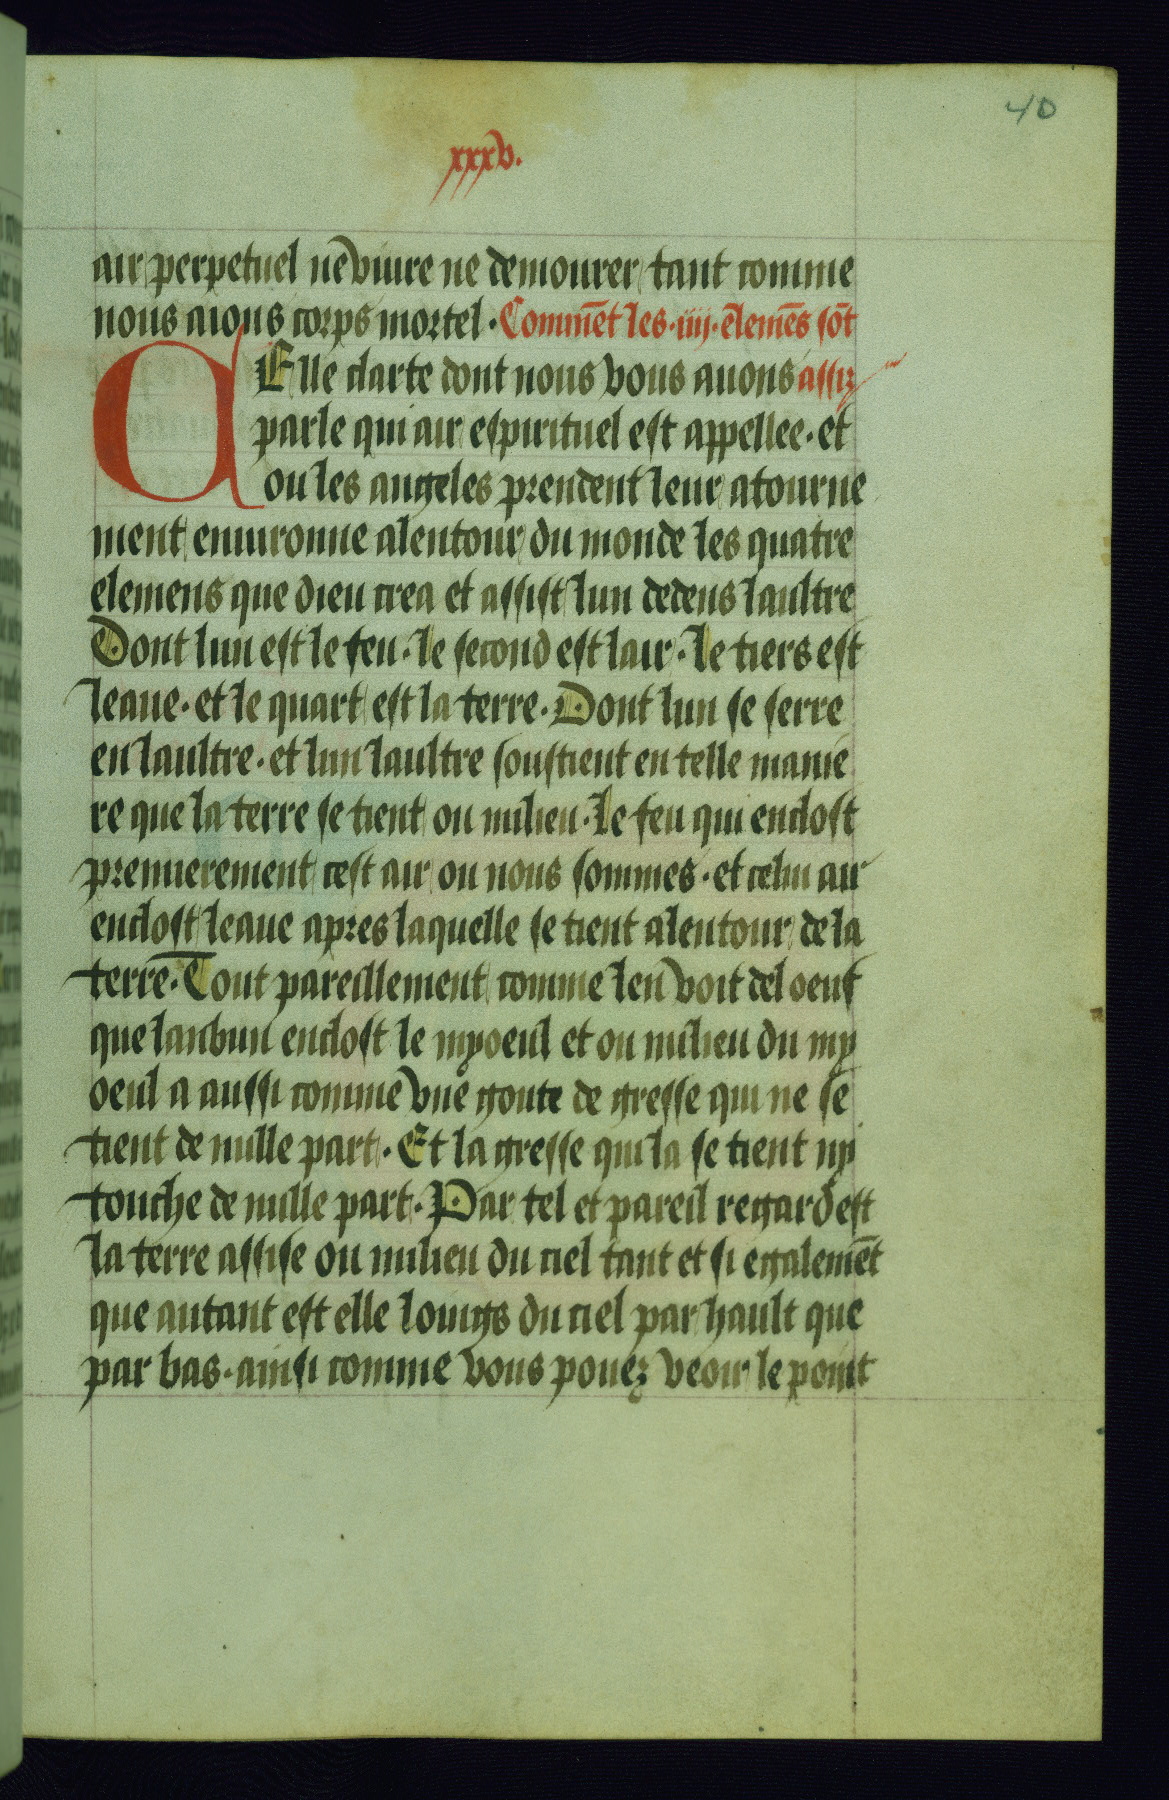 40
xxxv.
air perpetuel ne viure ne demourer tant comme
nous aions corps mortel. Comme̅t les .iiij. eleme̅s so̅t
CElle clarte dont nous vous auons assiz
parle qui air espirituel est appellee. et
ou les angeles prendent leur atourne
ment enuironne alentour du monde les quatre
elemens que dieu crea et assist lun dedens laultre
Dont lun est le feu. le second est lair. Le tiers est
leaue. et le quart est la terre. Dont lun se serre
en laultre. et lun laultre soustient en telle manie
re que la terre se tient ou milieu. Le feu qui enclost
premierement cest air ou nous sommes. et celui air
enclost leaue apres laquelle se tient alentour de la
terre. Tout pareillement comme len voit del oeuf
que laubun enclost le myoeul et ou milieu du my
oeul a aussi comme vne goute de gresse qui ne se
tient de nulle part. Et la gresse qui la se tient ny
touche de nulle part. Par tel et pareil regard est
la terre assise ou milieu du ciel tant et si egaleme̅t
que autant est elle loings du ciel par hault que
par bas. ainsi comme vous pouez veoir le point